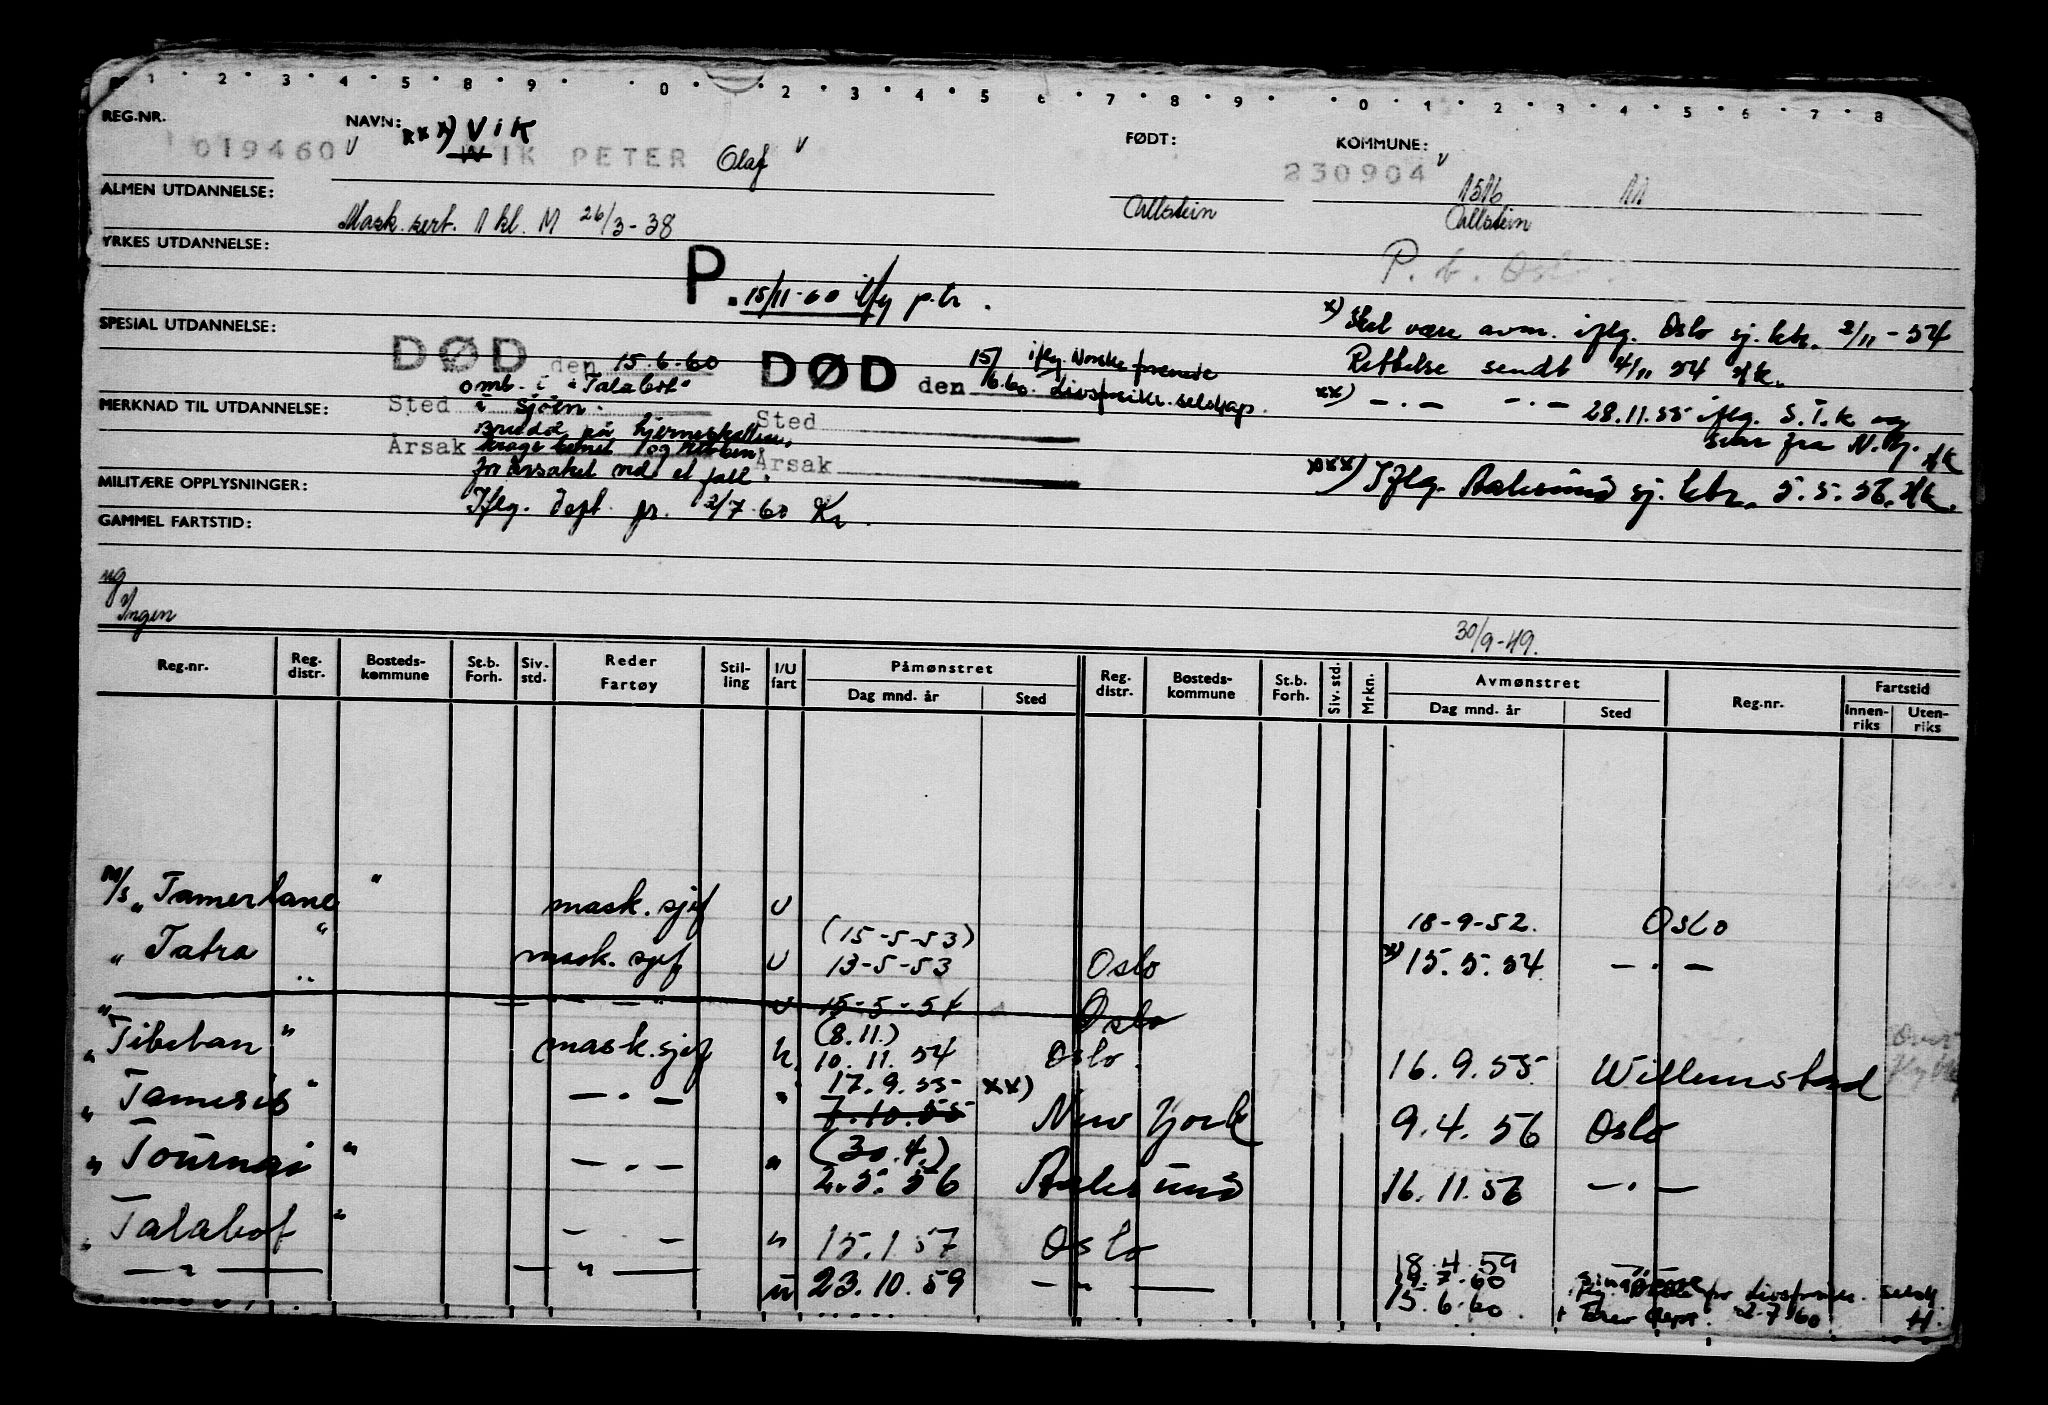 1 2 3 4 5 8 9 0 2 3 4 5 6 7 8 9 0 1 2 3 4 5 6 7 8
REG.NR. NAVN: xxx) Vik FØDT: KOMMUNE:
019460 WIK PETER Olaf 230904 1516
ALMEN UTDANNELSE: Ullstein Ullstein
Mask. sert. 1 kl. M 26/3-38
YRKES UTDANNELSE: P. b. Oslo
P. 15/11-60 iflg p.tr.
SPESIAL UTDANNELSE: x) Skal være avm. iflg. Oslo sj. ktr. 2/11-54
DØD den 15.6.60 DØD den 15/6.60. iflg. Norske forenede Livsforsikr. selskap. Rettelse sendt 4/11 54 Hk.
omb. i "Talabot"
MERKNAD TIL UTDANNELSE: Sted i sjøen. Sted xx) — . — — . — 28.11.55 iflg. S.T.K og
svar fra N.Y. HK
Brudd på hjerneskallen,
Årsak krage benet og ribben Årsak
forårsaket ved et fall.
MILITÆRE OPPLYSNINGER: xxx) Iflg. Aalesund sj. ktr. 5.5.56. Hk.
Iflg. Dept. 2/7-60 Kr.
GAMMEL FARTSTID:
Ingen
30/9-49.
Reg.nr. Reg. distr. Bosteds-kommune St.b. Forh. Siv. std. Reder Fartøy Stil-ling I/U fart Påmønstret Dag mnd. år Sted Reg. distr. Bosteds-kommune St.b. Forh. Siv. std. Mrkn. Avmønstret Dag mnd. år Sted Reg.nr. Fartstid Innen-riks Uten-riks
M/s "Tamerlane" mask. sjef U 18-9-52. Oslo
(15-5-53)
" Tatra " mask. sjef U 13-5-53 Oslo x) 15.5.54 — . —
" — " — " U 15-5-54 Oslo
(8.11.)
" Tibetan " mask. sjef U. 10.11.54 Oslo. 16.9.55 Willemstad
17.9.55 xx)
" Tamesis " — . — " 7.10.55 New York 9.4.56 Oslo
(30.4.)
" Tournai " — . — " 2.5.56 Aalesund 16.11.56 — . —
" Talabot " — — " 15.1.57 Oslo 18.4.59
— " — — " — U 23.10.59 — " — 15.6.60. + Brev dept. 2.7.60 H.